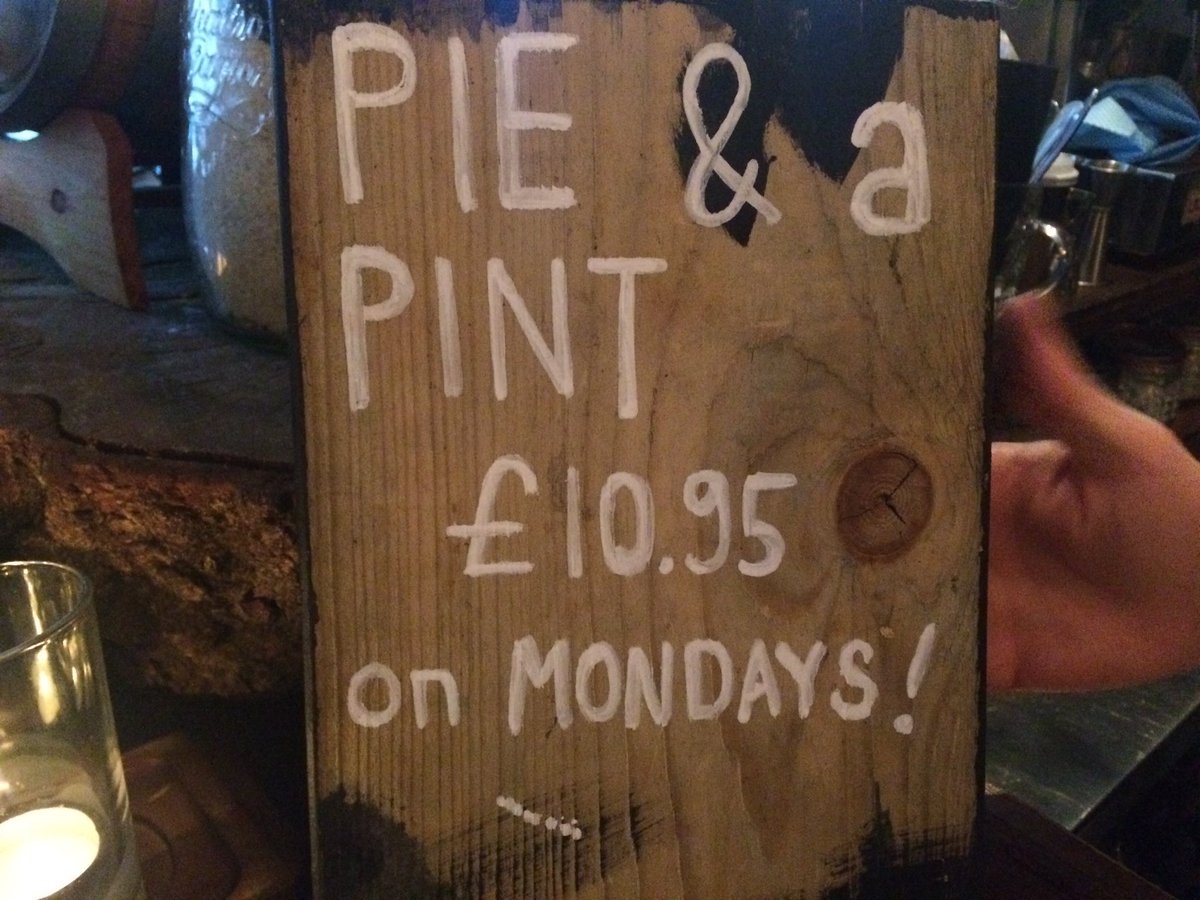 PIE & a
PINT
£10.95
on MONDAYS!